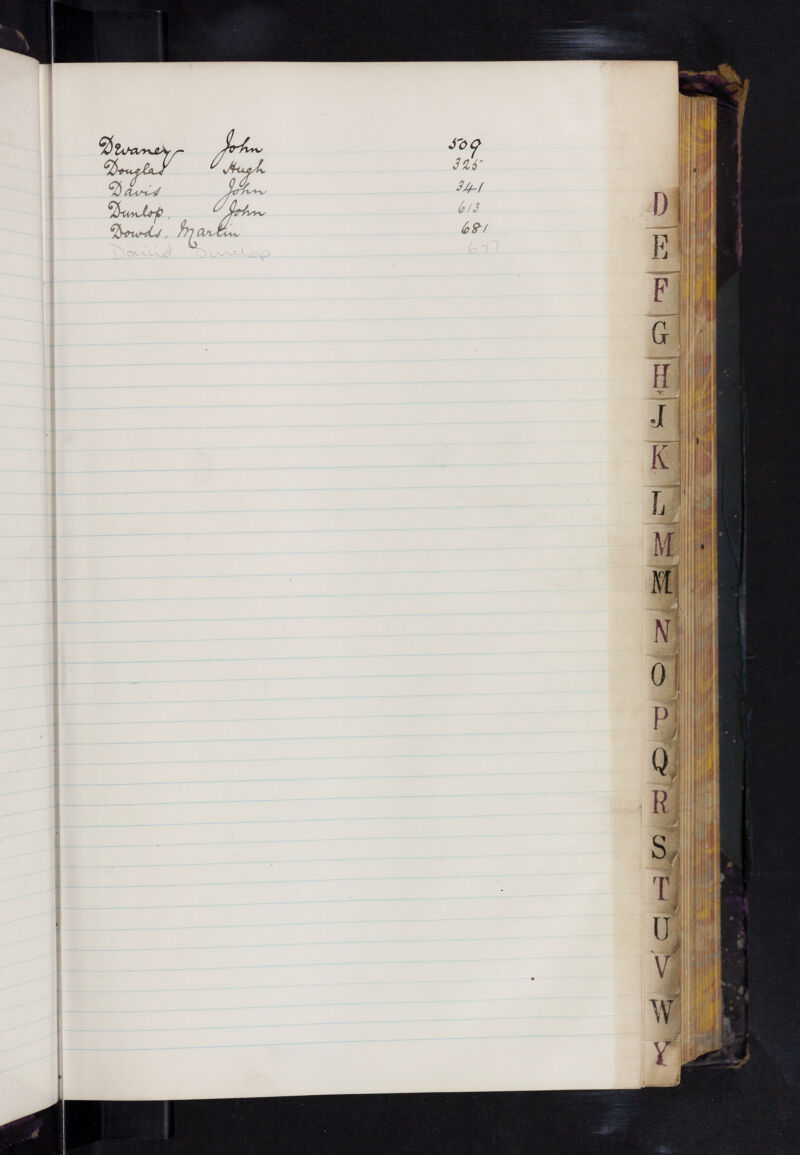 Devaney John 509
Douglas Hugh 325
Davis John 341
Dunlop, John 613
Dowds, Martin 681
David Dunlop 677
D
E
F
G
H
J
K
L
M
Mc
N
O
P
Q
R
S
T
U
V
W
Y